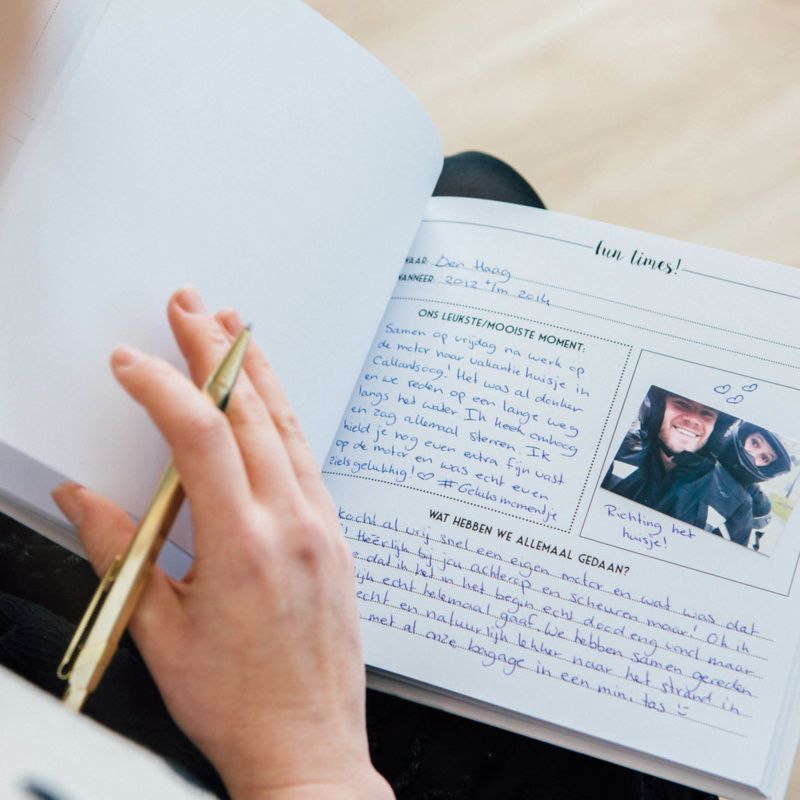 fun times!
WAAR: Den Haag
WANNEER: 2012 t/m 2014
ONS LEUKSTE/MOOISTE MOMENT:
Samen op vrijdag na werk op
de motor naar vakantiehuisje in
Callantsoog! Het was al donker
en we reden op een lange weg
langs het water Ik keek omhoog
en zag allemaal sterren. Ik
hield je nog even extra fijn vast
op de motor en was echt even
zielsgelukkig! #Geluksmomentje
Richting het
huisje!
WAT HEBBEN WE ALLEMAAL GEDAAN?
kocht al vrij snel een eigen motor en wat was dat
! Heerlijk bij jou achterop en scheuren maar! Oh ik
dat ik het in het begin echt doodeng vond maar
echt helemaal gaaf. We hebben samen gereden
echt en natuurlijk lekker naar het strand in
met al onze bagage in een mini tas